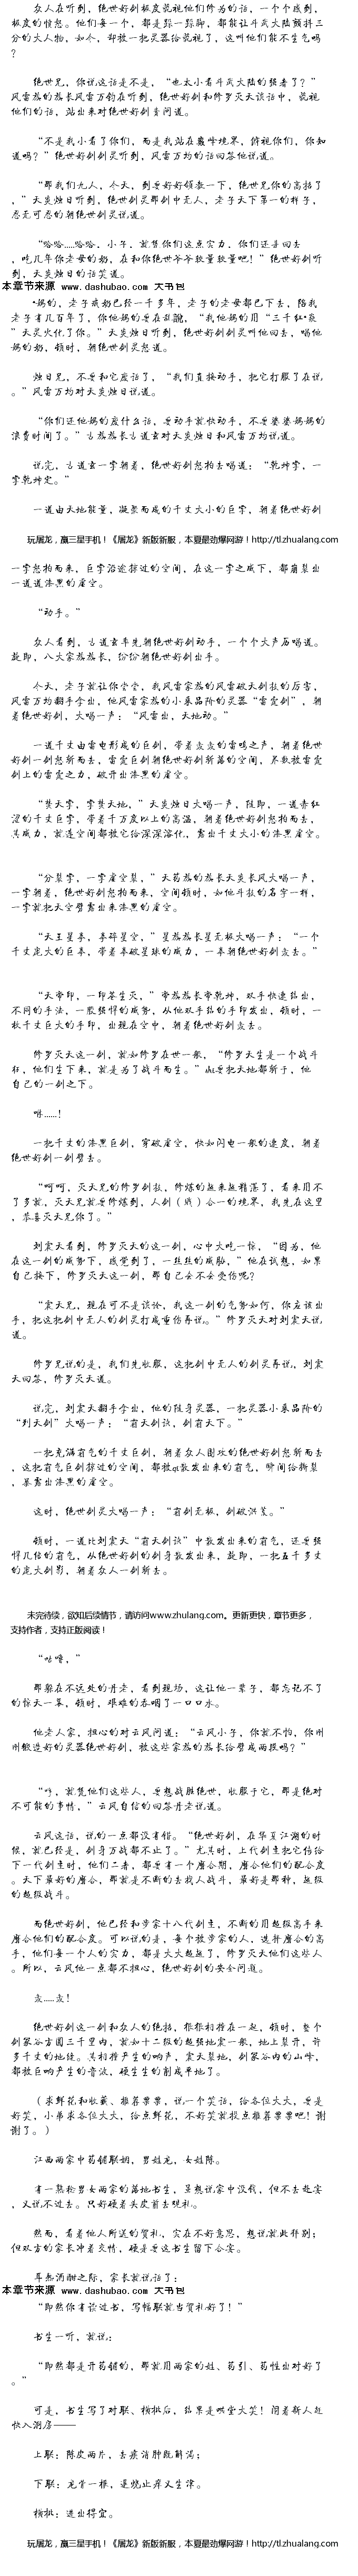 众人在听到，绝世好剑极度藐视他们修为的话，一个个感到，
极度的愤怒。他们每一个，都是跺一跺脚，都能让斗武大陆颤抖三
分的大人物，如今，却被一把灵器给藐视了，这叫他们能不生气吗
？
绝世兄，你说这话是不是，“也太小看斗武大陆的强者了？”
风雷族的族长风雷万钧在听到，绝世好剑和修罗灭天谈话中，藐视
他们的话，站出来对绝世好剑剑灵问道。
“不是我小看了你们，而是我站在巅峰境界，俯视你们，你知
道吗？”绝世好剑剑灵听到，风雷万均的话回答他说道。
“那我们九人，今天，到要好好领教一下，绝世兄你的高招了
。”天炎烛日听到，绝世剑灵那剑中无人，老子天下第一的样子，
忍无可忍的朝绝世剑灵说道。
“哈哈.....哈哈、小子、就凭你们这点实力、你们还是回去
，吃几年你老母的奶、在和你绝世爷爷较量较量吧！”绝世好剑听
到，天炎烛日的话笑道。
本章节来源 www.dashubao.com 大书包
·妈的，老子戒奶已经一千多年，老子的老母都已下去，陪我
老子有几百年了，你他妈的要在乱說，“我他妈的用“三千红*焱
”天灵火化了你。”天炎烛日听到，绝世好剑剑灵叫他回去，喝他
妈的奶，顿时，朝绝世剑灵怒道。
烛日兄，不要和它废话了，“我们直接动手，把它打服了在说
。”风雷万均对天炎烛日说道。
“你们还他妈的废什么话，要动手就快动手，不要婆婆妈妈的
浪费时间了。”古族族长古道玄对天炎烛日和风雷万均说道。
说完，古道玄一字朝着，绝世好剑怒拍去喝道：“乾坤字，一
字乾坤定。”
一道由天地能量，凝聚而成的千丈大小的巨字，朝着绝世好剑
玩屠龙，赢三星手机！《屠龙》新版新服，本夏最劲爆网游！http://tl.zhualang.com
一字怒拍而来，巨字沿途掠过的空间，在这一字之威下，都崩裂出
一道道漆黑的虚空。
“动手。”
众人看到，古道玄率先朝绝世好剑动手，一个个大声历喝道。
旋即，八大家族族长，纷纷朝绝世好剑出手。
今天，老子就让你尝尝，我风雷家族的风雷破天剑技的厉害，
风雷万均翻手拿出，他风雷家族的小乘品阶的灵器“雷霆剑”，朝
着绝世好剑，大喝一声：“风雷出，天地动。”
一道千丈由雷电形成的巨剑，带着轰轰的雷鸣之声，朝着绝世
好剑一剑怒斩而去，雷霆巨剑朝绝世好剑斩落的空间，尽数被雷霆
剑上的雷霆之力，破开出漆黑的虚空。
“焚天字，字焚天地，”天炎烛日大喝一声，随即，一道赤红
涩的千丈巨字，带着千万度以上的高温，朝着绝世好剑怒拍而去，
其威力，就连空间都被它给深深溶化，露出千丈大小的漆黑虚空。
“分裂字，一字虚空裂，”天药族的族长天炎长风大喝一声，
一字朝着，绝世好剑怒拍而来，空间顿时，如他斗技的名字一样，
一字就把天空劈露出来漆黑的虚空。
“天王星拳，拳碎星空，”星族族长星无极大喝一声：“一个
千丈庞大的巨拳，带着拳破星球的威力，一拳朝绝世好剑轰去。”
“天帝印，一印苍生灭，”帝族族长帝乾坤，双手快速结出，
不同的手法，一股强悍的威势，从他双手结的手印发出，顿时，一
枚千丈巨大的手印，出现在空中，朝着绝世好剑轰去。
修罗灭天这一剑，就如修罗在世一般，“修罗天生是一个战斗
狂，他们生下来，就是为了战斗而生。”仙要把天地都斩于，他
自己的一剑之下。
咻......！
一把千丈的漆黑巨剑，穿破虚空，快如闪电一般的速度，朝着
绝世好剑一剑劈去。
“呵呵，灭天兄的修罗剑技，修炼的越来越精湛了，看来用不
了多就，灭天兄就要修炼到，人剑（战）合一的境界，我先在这里
，恭喜灭天兄你了。”
刘震天看到，修罗灭天的这一剑，心中大吃一惊，“因为，他
在这一剑的威势下，感觉到了，一丝丝的威胁，”他在试想，如果
自己接下，修罗灭天这一剑，那自己会不会受伤呢？
“震天兄，现在可不是谈论，我这一剑的气势如何，你应该出
手，把这把剑中无人的剑灵打成重伤再说。”修罗灭天对刘震天说
道。
修罗兄说的是，我们先收服，这把剑中无人的剑灵再说，刘震
天回答，修罗灭天道。
说完，刘震天翻手拿出，他的随身灵器，一把灵器小乘品阶的
“刑天剑”大喝一声：“霸天剑诀，剑霸天下。”
一把充满霸气的千丈巨剑，朝着众人围攻的绝世好剑怒斩而去
，这把霸气巨剑掠过的空间，都被qt散发出来的霸气，瞬间给撕裂
，暴露出漆黑的虚空。
这时，绝世剑灵大喝一声：“霸剑无极，剑破洪荒。”
顿时，一道比刘震天“霸天剑诀”中散发出来的霸气，还要强
悍几倍的霸气，从绝世好剑的剑身散发出来，旋即，一把五千多丈
的庞大剑影，朝着众人一剑斩去。
未完待续，欲知后续情节，请访问www.zhulang.com。更新更快，章节更多，
支持作者，支持正版阅读！
“咕噜，”
那躲在不远处的丹老，看到现场，这让他一辈子，都忘记不了
的惊天一幕，顿时，艰难的吞咽了一口口水。
他老人家，担心的对云风问道：“云风小子，你就不怕，你刚
刚锻造好的灵器绝世好剑，被这些家族的族长给劈成两段吗？”
“哼，就凭他们这些人，要想战胜绝世，收服于它，那是绝对
不可能的事情，”云风自信的回答丹老说道。
云风这话，说的一点都没有错。“绝世好剑，在华夏江湖的时
候，就已经是，剑身万战都不止了。”尤其时，上代剑主把它传给
下一代剑主时，他们二者，都要有一个磨合期，磨合他们的配合度
。天下最好的磨合，那就是不断的去找人战斗，最好是那种，越级
的超级战斗。
而绝世好剑，他已经和步家十八代剑主，不断的用超级高手来
磨合他们的配合度。可以说的是，每个被步家的人，选择磨合的高
手，他们每一个人的实力，都是大大超越了，修罗灭天他们这些人
。所以，云风他一点都不担心，绝世好剑的安全问题。
轰.....轰！
绝世好剑这一剑和众人的绝招，狠狠相撞在一起，顿时，整个
剑冢谷方圆三千里内，就如十二级的超强地震一般，地上裂开，许
多千丈的地缝。其相撞产生的响声，震天裂地，剑冢谷内的山峰，
都被巨响产生的音波，硬生生的削成平地了。
（求鲜花和收藏、推荐票票，说一个笑话，给各位大大，要是
好笑，小弟求各位大大，给点鲜花，不好笑就投点推荐票票吧！谢
谢了。）
江西两家中药铺联姻，男姓龙，女姓陈。
有一熟称男女两家的落地书生，虽想说家中没钱，但不去赴宴
，又说不过去。只好硬着头皮前去观礼。
然而，看着他人所送的贺礼，实在不好意思，想说就此辞别；
但双方的家长冲着交情，硬是要这书生留下会宴。
耳热酒酣之际，家长就说话了：
本章节来源 www.dashubao.com 大书包
“即然你有读过书，写幅联就当贺礼好了！”
书生一听，就说：
“即然都是开药铺的，那就用两家的姓、药引、药性出对好了
。”
可是，书生写了对联、横批后，结果是哄堂大笑！闹着新人赶
快入洞房——
上联：陈皮两片，去痰消肿既解渴；
下联：龙骨一根，退烧止痒又生津。
横批：进出得宜。
玩屠龙，赢三星手机！《屠龙》新版新服，本夏最劲爆网游！http://tl.zhualang.com